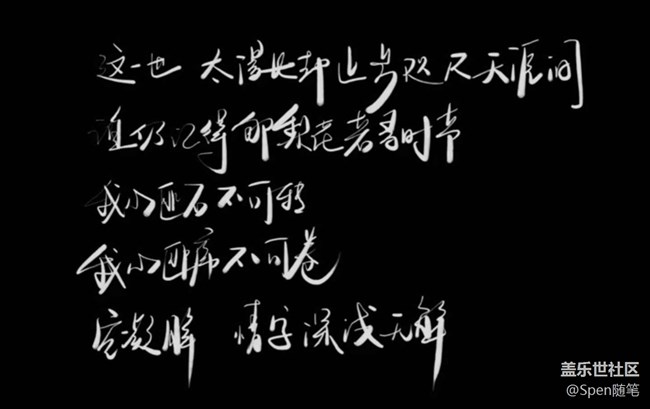 这一世 太漫长却止步咫尺天涯间
谁仍记得那梨花若雪时节
我心匪石不可转
我心匪席不可卷
空凝眸 情字深浅无解
盖乐世社区
@Spen随笔